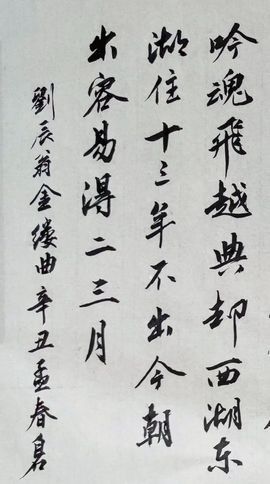 吟魂飛越典却西湖东
湖住十三年不出今朝
出容易得二三月
劉辰翁金缕曲辛丑孟春昌